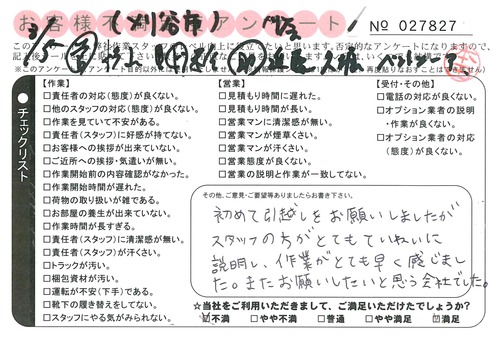 お客様不満足アンケート
(刈谷市)
No 027827
チェックリスト
【作業】
□責任者の対応(態度)が良くない。
□他のスタッフの対応(態度)が良くない。
□作業を見ていて不安がある。
□責任者(スタッフ)に好感が持てない。
□お客様への挨拶が出来ていない。
□ご近所への挨拶・気遣いが無い。
□作業開始前の内容確認がなかった。
□作業開始時間が遅れた。
□荷物の取り扱いが雑である。
□お部屋の養生が出来ていない。
□作業時間が長すぎる。
□責任者(スタッフ)に清潔感が無い。
□責任者(スタッフ)が汗くさい。
□トラックが汚い。
□梱包資材が汚い。
□運転が不安(下手)である。
□靴下の履き替えをしてない。
□スタッフにやる気がみられない。
【営業】
□見積もり時間に遅れた。
□見積もり時間が長い。
□営業マンに清潔感が無い。
□営業マンが煙草くさい。
□営業マンが汗くさい。
□営業態度が良くない。
□営業の説明と作業が一致してない。
【受付・その他】
□電話の対応が良くない。
□オプション業者の説明
・作業が良くない。
□オプション業者の対応
(態度)が良くない。
その他、ご意見・ご要望等ありましたらお書き下さい。
初めて引越しをお願いしましたが
スタッフの方がとてもていねいに
説明し、作業がとても早く感じまし
た。またお願いしたいと思う会社でした。
☆当社をご利用いただきまして、ご満足いただけたでしょうか?
□不満 □やや不満 □普通 □やや満足 ☑満足